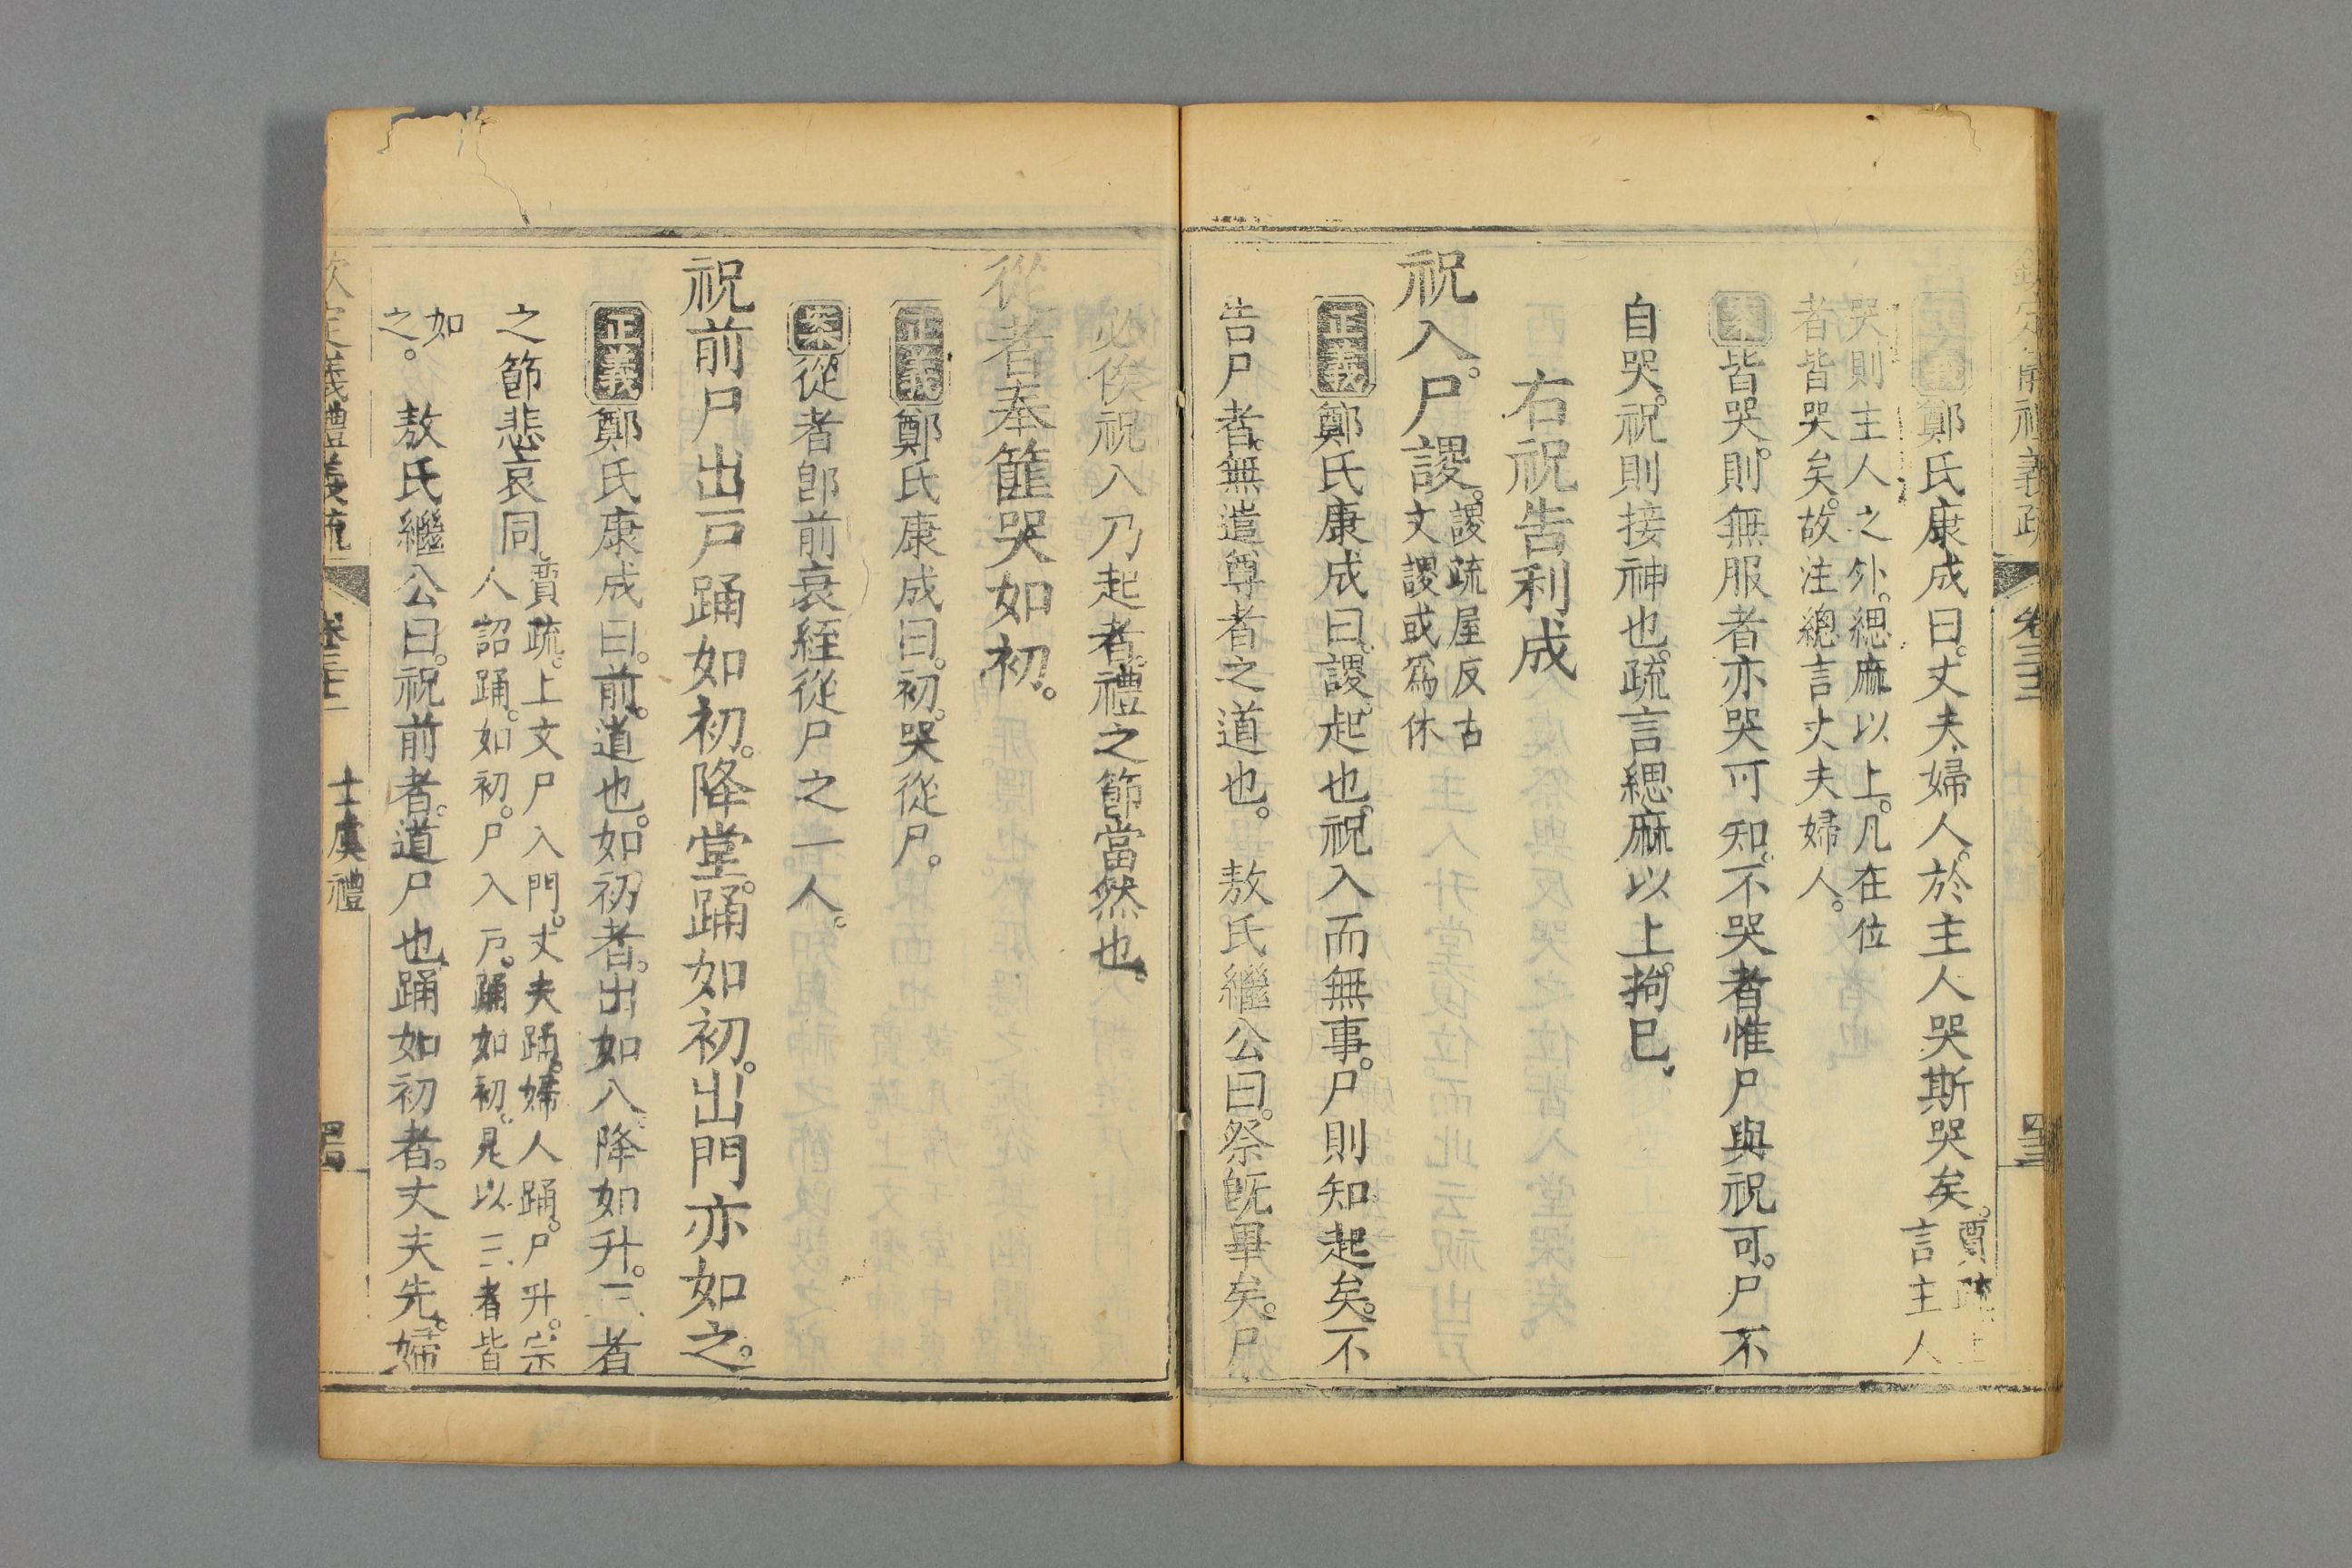 欽定儀禮義疏　卷三十三
正義鄭氏康成曰。丈夫婦人。於主人哭斯哭矣。賈疏上
言主人
哭則主人之外。緦麻以上。凡在位
者皆哭矣。故注總言丈夫婦人。
案皆哭。則無服者亦哭可知。不哭者惟尸與祝可。尸不
自哭。祝則接神也。疏言緦麻以上。拘已。
右祝告利成
祝入。尸謖。謖疏屋反古
文謖或爲休
正義鄭氏康成曰。謖。起也。祝入而無事。尸則知起矣。不
告尸者。無遣尊者之道也。　敖氏繼公曰。祭旣畢矣。尸
必俟祝入乃起者。禮之節當然也。
從者奉篚哭如初。
正義鄭氏康成曰。初。哭從尸。
案從者卽前衰絰從尸之一人。
祝前尸出戸踊如初。降堂。踊如初。出門亦如之。
正義鄭氏康成曰。前。道也。如初者。出如入。降如升。三者
之節悲哀同。賈疏。上文尸入門。丈夫踊。婦人踊。尸升。宗
人詔踊。如初。尸入戸。踊如初。是以三者皆
如
之。　敖氏繼公曰。祝前者。道尸也。踊如初者。丈夫先。婦
欽定儀禮義疏　卷三十三　士虞禮